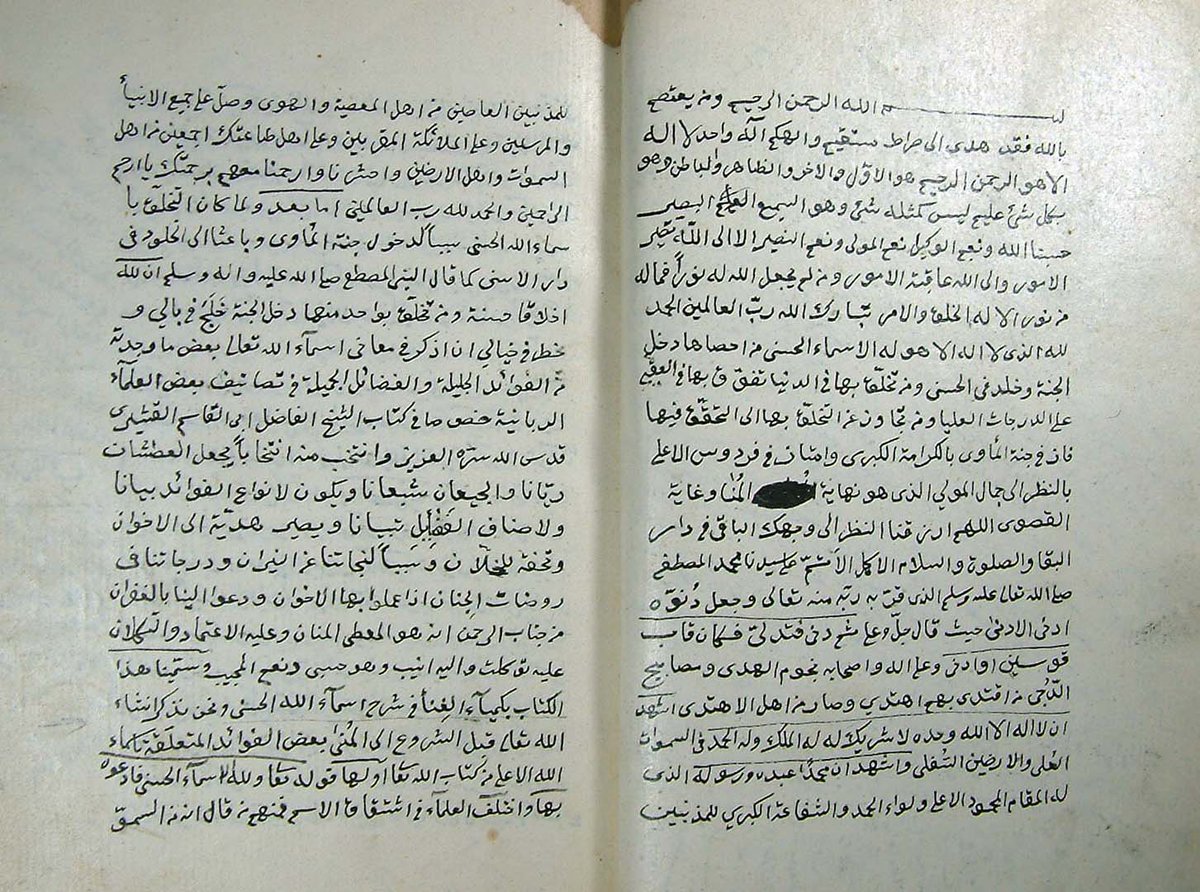 بسم الله الرحمن الرحيم ومن يعتصم
بالله فقد هدى الى صراط مستقيم والهكم اله واحد لا اله
الا هو الرحمن الرحيم هو الاول والاخر والظاهر والباطن وهو
بكل شئ عليم ليس كمثله شئ وهو السميع العليم البصير
حسبنا الله ونعم الوكيل نعم المولى ونعم النصير الا الى الله تصير
الامور والى الله عاقبة الامور ومن لم يجعل الله له نوراً فما له
من نور الا له الخلق والامر تبارك الله ربّ العالمين الحمد
لله الذى لا اله الا هو له الاسماء الحسنى من احصاها دخل
الجنة وخلد فى الحسنى ومن تخلّق بها فى الدنيا تفوّق بها فى العقبى
على الدرجات العليا ومن تجاوز عن التخلق بها الى التحقّق فيها
فاز فى جنة المأوى بالكرامة الكبرى وامتاز فى فردوس الاعلى
بالنظر الى جمال المولى الذى هو نهاية المُنا وغاية
القصوى اللهم ارزقنا النظر الى وجهك الباقى فى دار
البقا والصلوة والسلام الاكمل الاتمّ على سيدنا محمد المصطفى
صلى الله تعالى عليه وسلم الذى قرّبه ربّه منه تعالى وجعل دُنوّه
ادنى الادنى حيث قال جلّ وعلا ثم دنى فتدلّى فكان قاب
قوسين او ادنى وعلى اله واصحابه نجوم الهدى ومصابيح
الدّجى من اقتدى بهم اهتدى وصار من اهل الاهتدى اشهد
ان لا اله الا الله وحده لا شريك له له الملك وله الحمد فى السموات
العُلى والارضين السُّفلى واشهد ان محمّدا عبده ورسوله الذى
له المقام المحمود الاعلى ولواء الحمد والشفاعة الكبرى للمذنبين
للمذنبين العاصين من اهل المعصية والهوى وصلّ على جميع الانبيأ
والمرسلين وعلى الملائكة المقربين وعلى اهل طاعتك اجمعين من اهل
السموات واهل الارضين واحشرنا وارحمنا معهم برحمتك يا ارحم
الراحمين والحمد لله رب العالمين اما بعد ولما كان التخلق با
سماء الله الحسنى سبباً لدخول جنة المأوى وباعثا الى الخلود فى
دار الاسنى كما قال النبى المصطفى صلى الله عليه واله وسلم ان لله
اخلاقا حسنة ومن تخلّق بواحد منها دخل الجنة خلج فى بالي و
خطر فى خيالي ان اذكر فى معانى اسمآء الله تعالى بعض ما وجدته
من الفوائد الجليلة والفضائل الجميلة فى تصانيف بعض العلمآء
الربانية خصوصا فى كتاب الشيخ الفاضل ابى القاسم القشيرى
قدس الله سره العزيز وانتخب منه انتخاباً يجعل العطشات
ريّانا والجيعان شبعانا ويكون لانواع الفوائد بيانا
ولاصناف تبيانا ويصير هديّة الى الاخوان
وتحفة للخلّان وسبباً لنجاتنا عن النيران ودرجاتنا فى
روضات الجنان اذا عملوا بها الاخوان ودعوا الينا بالغفران
من جناب الرحمن انه هو المعطى المنان وعليه الاعتماد والتكلان
عليه توكلت واليه انيب وهو حسبى ونعم المجيب وسمّينا هذا
الكتاب بكيميآء الغنأ فى شرح اسمآء الله الحسنى ونحن نذكر انشاء
الله تعالى قبل الشروع الى المُنى بعض الفوائد المتعلقة باسماء
الله الاعلى من كتاب الله تعا اولها قوله تعا ولله اسمآء الحسنى فادعوه
بها واختلف العلمآء فى اشتقاق الاسم فمنهم من قال انه من السموّ